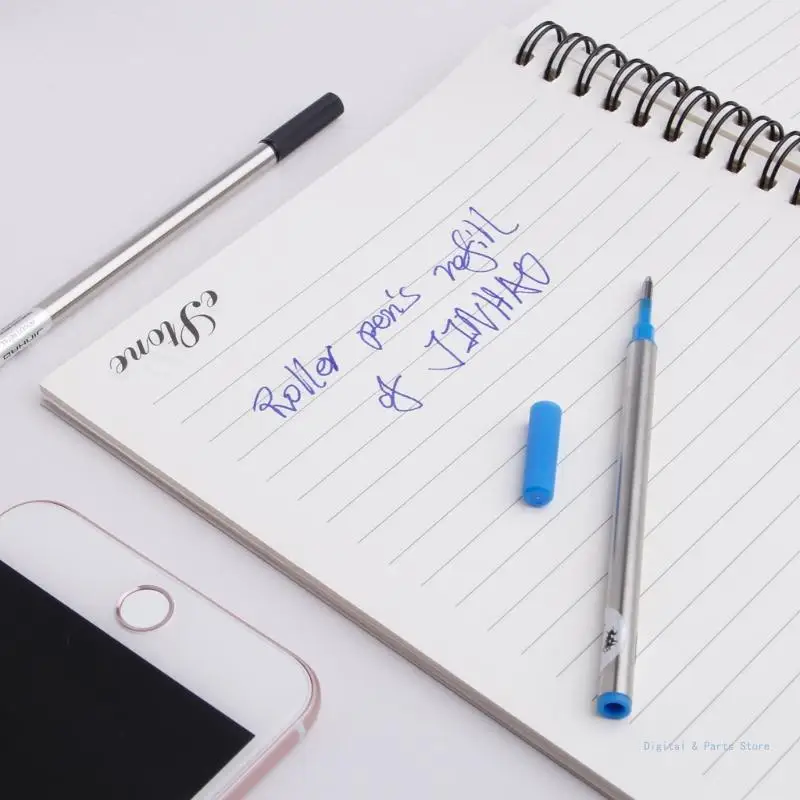 eStone
Roller pen's refill
of JINHAO
JINHAO
Digital & Parts Store